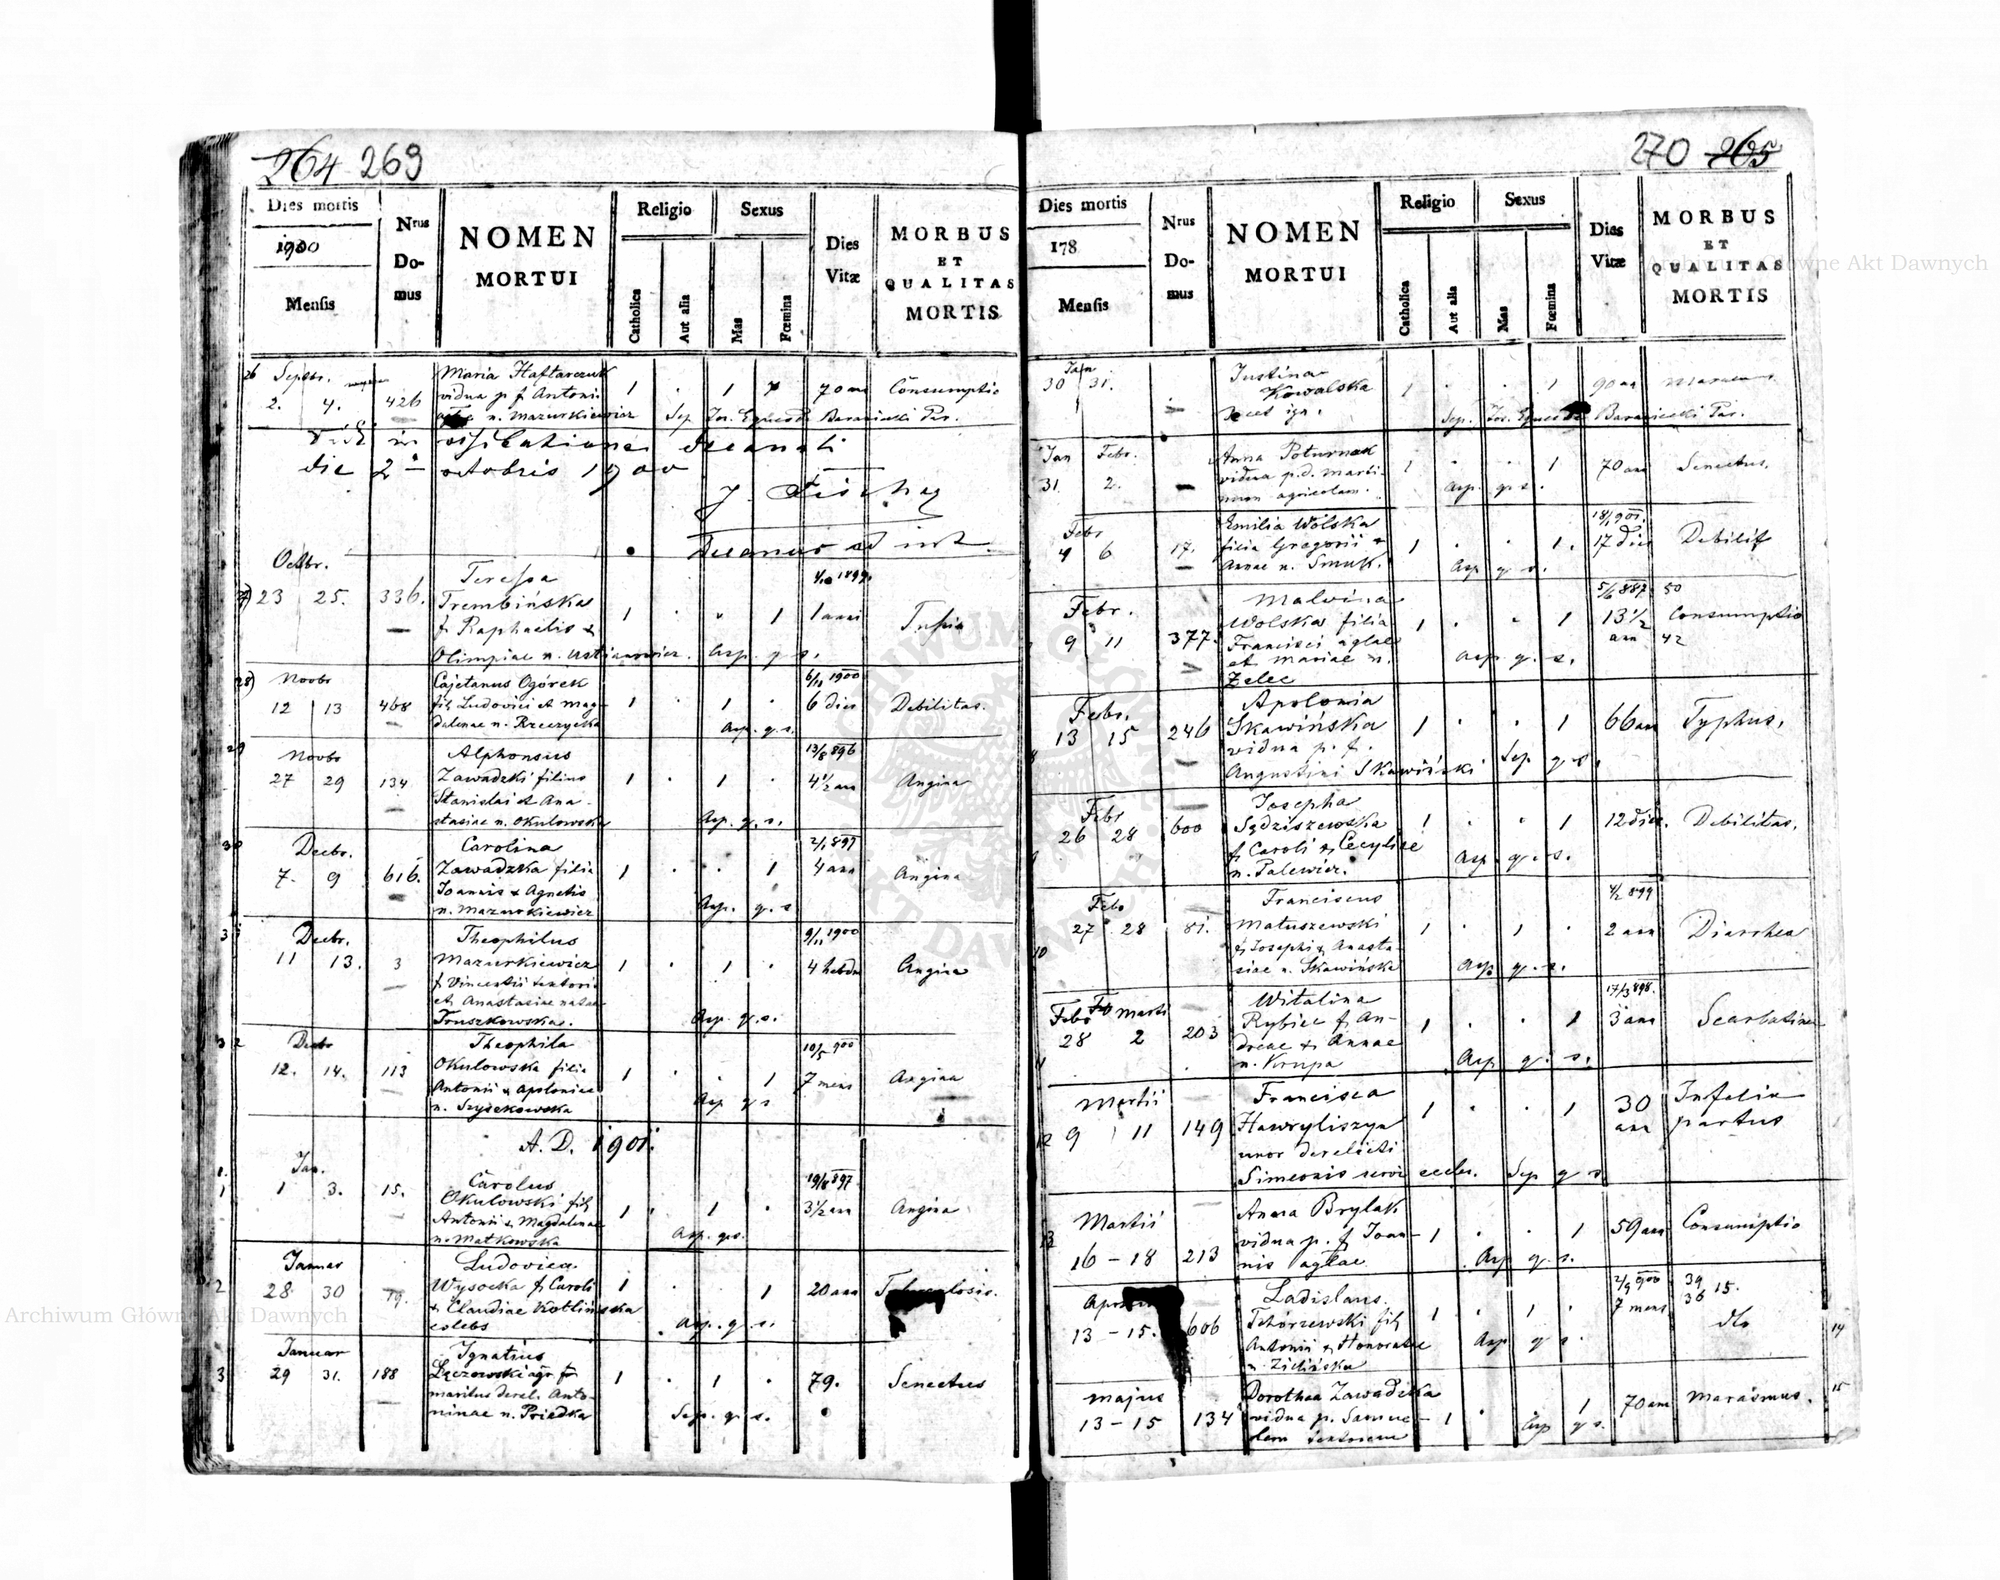 264 269
Dies mortis
1900
Mensis
Nrus
Do-
mus
NOMEN
MORTUI
Religio
Catholica
Aut alia
Sexus
Mas
Fœmina
Dies
Vitæ
MORBUS
ET
QUALITAS
MORTIS
26 Septbr.
2. 4. 426
Maria Haftarczuk
vidua p f Antoni
n. Mazurkiewicz
1 . 1 70 an Consumptio
Sep. Jos. Eques de Baraniecki Par.
Vidi in visitatione decanali
die 2 octobris 1900
Decanus ad int.
Octbr.
27) 23 25. 336.
Teressa
Trembińska
f Raphaelis &
Olimpiae n. Ustianowicz. Asp. g. s.
1 . 1
1899.
1 anni Tussis
28) Novbr
12 13 468
Cajetanus Ogórek
fil Ludovici et Mag-
dalenae n. Rzeczycka
1 . 1 .
Asp. g. s.
6/11 1900
6 dies Debilitas.
29 Novbr
27 29 134
Alphonsus
Zawadzki filius
Stanislai et Ana-
stasiae n. Okulowska
1 . 1 .
Asp. g. s.
13/8 896
4 1/2 ann Angina
30 Decbr.
7. 9 616.
Carolina
Zawadzka filia
Ioannis & Agnetis
n. Mazurkiewicz
1 . . 1
Asp. g. s
2/1 897
4 ann Angina
31 Decbr.
11 13. 3
Theophilus
Mazurkiewicz
f Vincentii textoris
et Anastasiae natae
Truszkowska.
1 . 1 .
Asp. g. s.
9/11 1900
4 hebdo Angina
32 Decbr
12. 14. 113
Theophila
Okulowska filia
Antonii & Apoloniae
n. Szydłowska
1 . . 1
Asp g s
10/5 900
7 mens Angina
A. D. 1901.
1. Jan.
1 3. 15.
Carolus
Okulowski fil
Antonii & Magdalenae
n. Matkowska
1 . 1 .
Asp. gs.
19/6 897
3 1/2 ann Angina
2 Januar
28 30 79.
Ludovica
Wysocka f. Caroli
& Claudiae Kotlińska
celebs
1 . . 1
Asp. g. s.
20 ann Tuberculosis.
3 Januar
29 31. 188
Ignatius
maritus derel. Anto-
ninae n. Priadka
1 . 1 .
Sep. g. s.
79. Senectus
270 265
Dies mortis
178
Mensis
Nrus
Do-
mus
NOMEN
MORTUI
Religio
Catholica
Aut alia
Sexus
Mas
Fœmina
Dies
Vitæ
MORBUS
ET
QUALITAS
MORTIS
Jan.
30 31.
Justina
Kowalska
1 . . 1 90 an
Sep. Jos. Eques de Baraniecki Par.
Jan Febr.
31 2.
Anna Poturnak
vidua p. d. Marti-
num agricolam.
1 . . 1
Asp. g. s.
70 ann Senectus.
Febr
4 6 17.
Emilia Wolska
filia Gregorii &
Annae n. Smuk.
1 . . 1.
Asp g s.
18/1 901.
17 dies Debilit
Febr.
9 11 377.
Malvina
Wolska filia
Francisci aglae
et Mariae n.
Zelec
1 . . 1
Asp. g. s.
5/6 887. 50
13 1/2 Consumptio
ann 42
Febr.
13 15 246
Apolonia
Skawińska
vidua p. f.
Augustini Skawiński
1 . . 1
Sep g s.
66 ann Typhus.
Febr
26 28 600
Josepha
Sędziszewska
f Caroli & Cecyliae
n. Palewicz.
1 . . 1
Asp. g. s.
12 dies. Debilitas.
10 Febr
27 28 81.
Franciscus
Matuszewski
f. Josephi & Anasta-
siae n. Skawińska
1 . 1 .
Asp. g. s.
4/2 899
2 ann Diarrhea
Febr Marti
28 2 203
Witalina
Rybiec f. An-
dreae & Annae
n. Krupa
1 . . 1
Asp g. s.
17/3 898.
3 ann Scarlatina
12 Martii
9 11 149
Francisca
Hawryliszyn
uxor derelicti
Simeonis servi eccles. Sep g s
1 . . 1
30
ann
Infelix
partus
13 Martii
16 - 18 213
Anna Brylak
vidua p. f Joan-
nis aglae
1 . . 1
Asp g. s.
59 ann Consumptio
13 - 15. 606
Ladislaus.
Tchórzewski fil
Antonii & Honoratae
n. Zielińska
1 . 1 .
Asp g s.
2/9 900
7 mens
39 15.
36
dto
14
Majus
13 - 15 134
Dorothea Zawadzka
vidua p. Samue-
lem textorem
1 . 1
Asp g s.
70 ann Marasmus.
15
Archiwum Główne Akt Dawnych
Archiwum Główne Akt Dawnych
ARCHIWUM GŁÓWNE AKT DAWNYCH